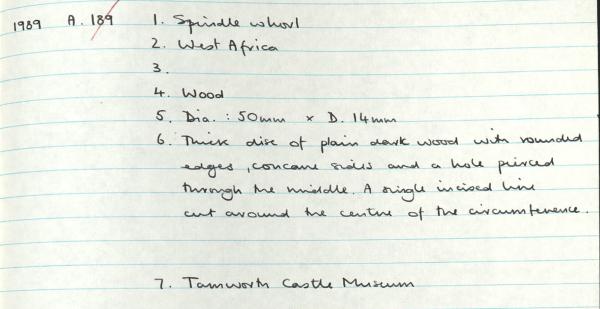 1989 A.189 1. Spindle whorl
2. West Africa
3.
4. Wood
5. Dia. : 50mm × D. 14mm
6. Thick disc of plain dark wood with rounded
edges, concave sides and a hole pierced
through the middle. A single incised line
cut around the centre of the circumference.
7. Tamworth Castle Museum